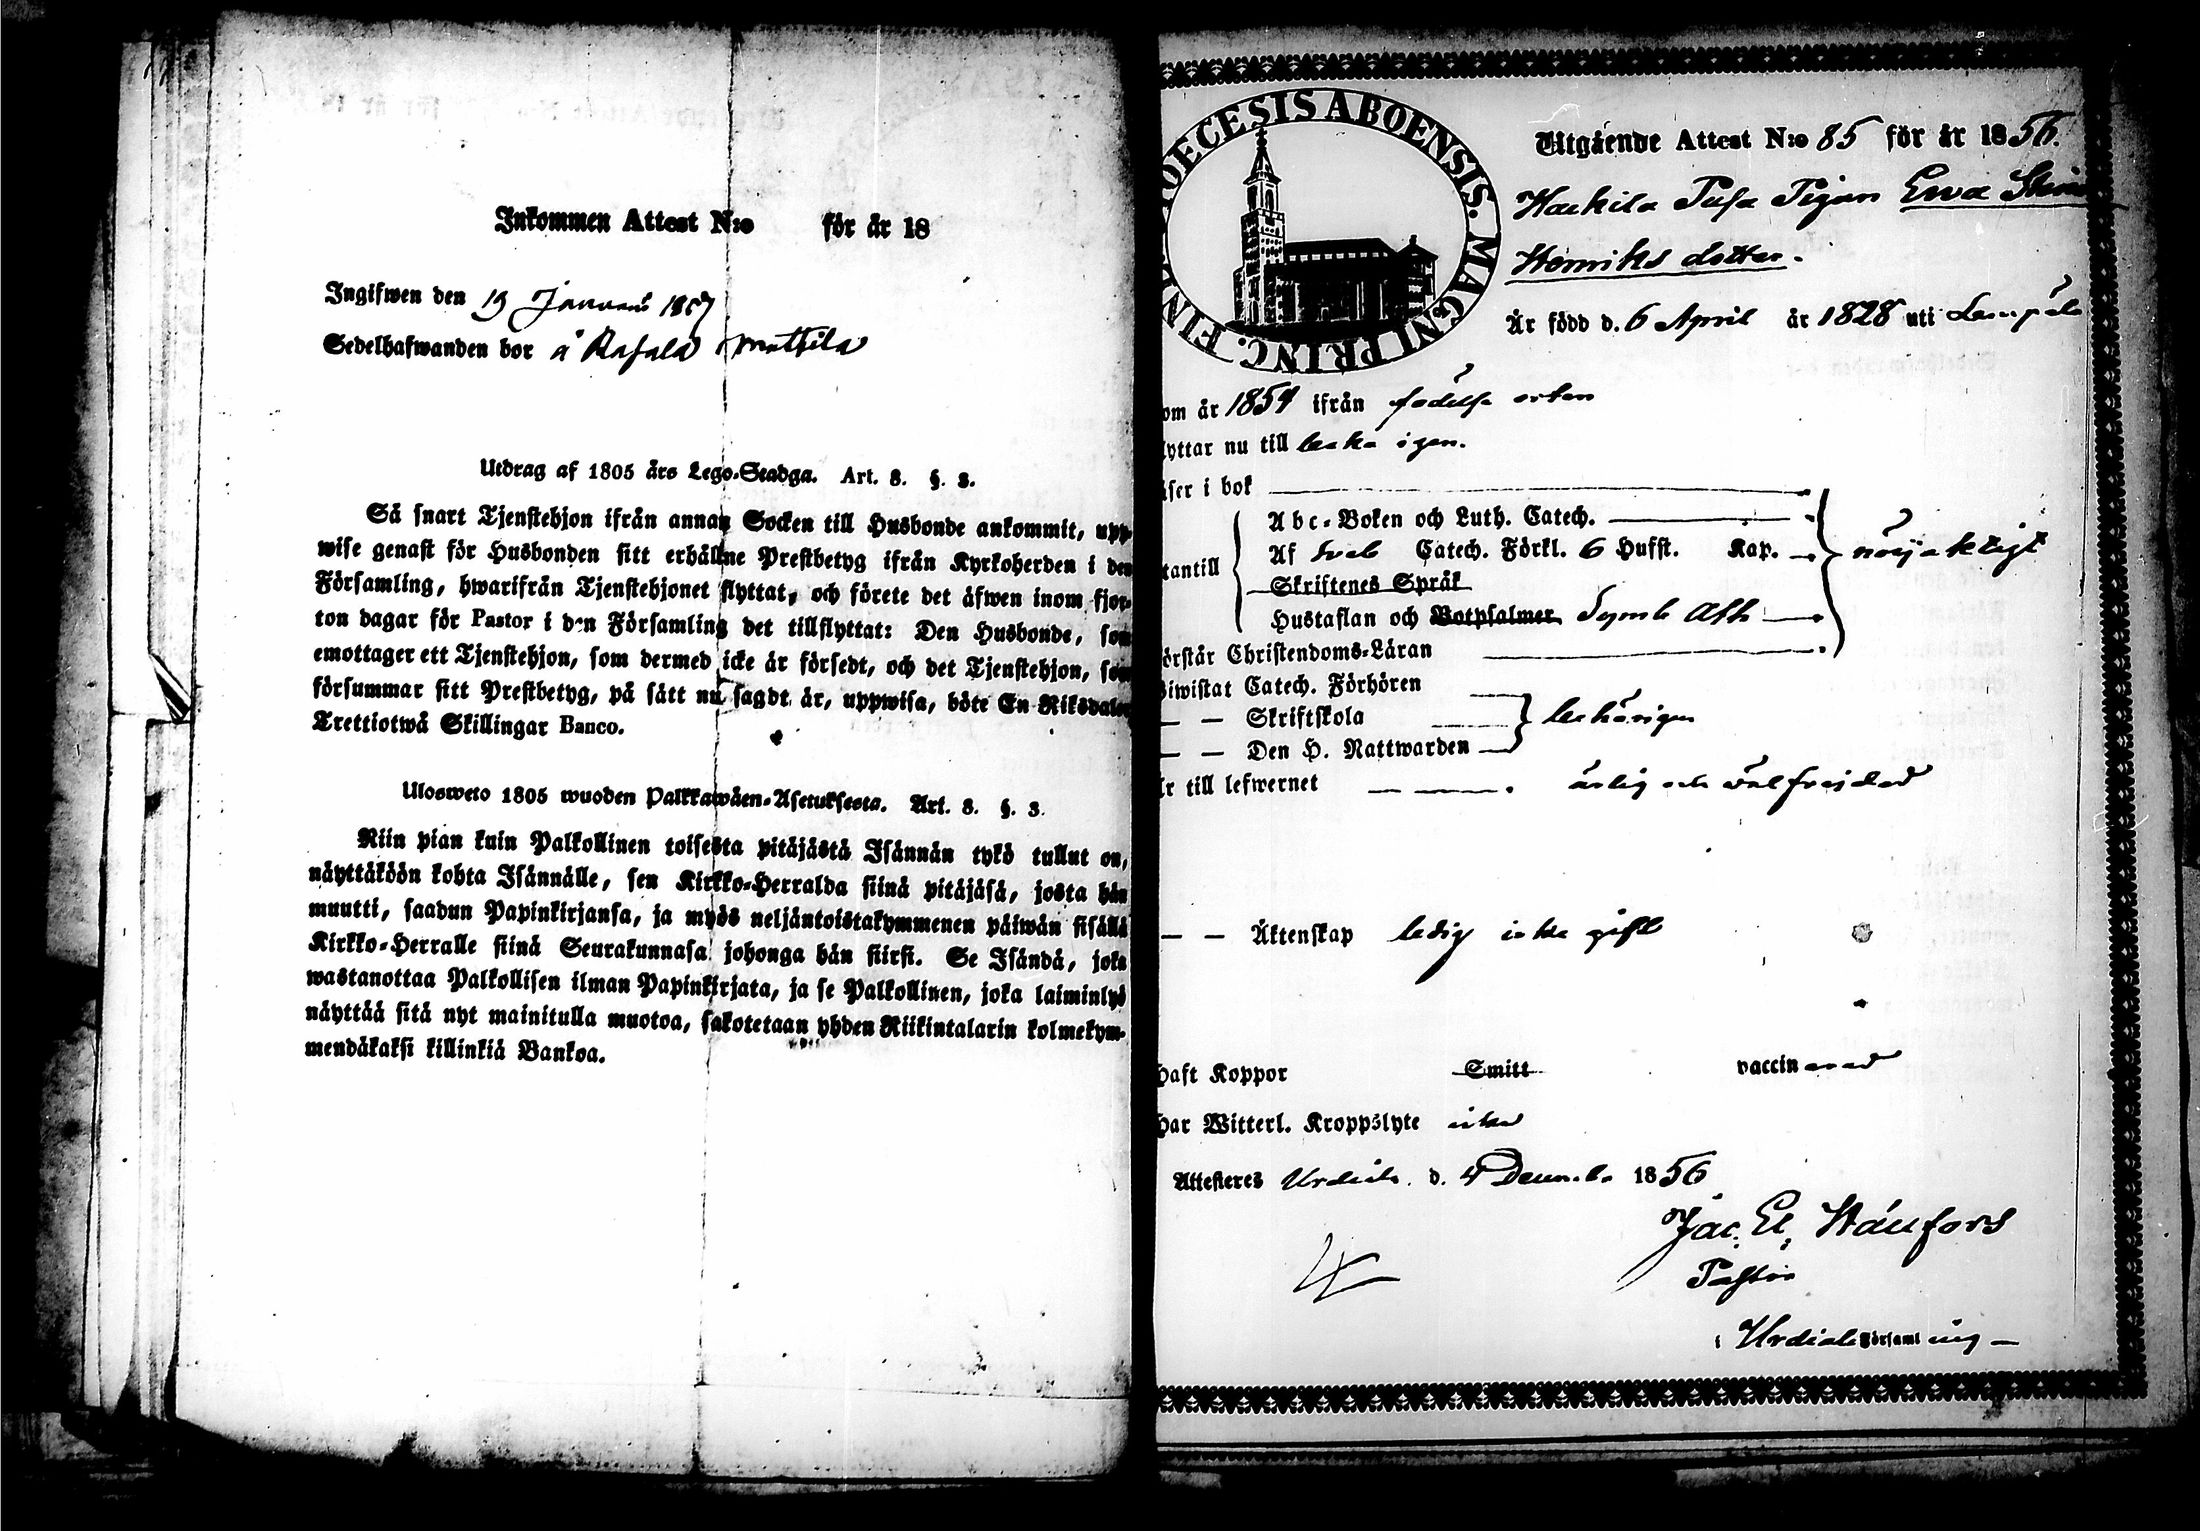 Inkommen Attest N:o för år 18
Ingifwen den 19 Januari 1857
Sedelhafwanden bor å Rasala Mattila
Utdrag af 1805 års Lego-Stadga. Art. 8. §. 3.
Så snart Tjenstehjon ifrån annan Socken till Husbonde ankommit, upp-
wise genast för Husbonden sitt erhållne Prestbetyg ifrån Kyrkoherden i den
Församling, hwarifrån Tjenstehjonet flyttat, och förete det äfwen inom fjor-
ton dagar för Pastor i den Församling det tillflyttat: Den Husbonde, som
emottager ett Tjenstehjon, som dermed icke är försedt, och det Tjenstehjon, som
försummar sitt Prestbetyg, på sätt nu sagdt är, uppwisa, böte En Riksdaler
Trettiotwå Skillingar Banco.
Ulosweto 1805 wuoden Palkkawäen-Asetuksesta. Art. 8. §. 3.
Niin pian kuin Palkollinen toisesta pitäjästä Isännän tykö tullut on,
näyttäköön kohta Isännälle, sen Kirkko-Herralda siinä pitäjäsä, josta hän
muutti, saadun Papinkirjansa, ja myös neljäntoistakymmenen päiwän sisällä
Kirkko-Herralle siinä Seurakunnasa johonga hän siirsi. Se Isändä, joka
wastanottaa Palkollisen ilman Papinkirjata, ja se Palkollinen, joka laiminlyö
näyttää sitä nyt mainitulla muotoa, sakotetaan yhden Riikintalarin kolmekym-
mendäkaksi killinkiä Bankoa.
DIOECESIS ABOENSIS. MAGNI PRINC. FIN
Utgående Attest N:o 85 för år 1856.
Pigan Ewa Stina
Henriks dotter.
Är född d. 6 April år 1828 uti Lempälä
om år 1854 ifrån födelse orten
lyttar nu till baka igen.
äser i bok
Abc-Boken och Luth. Catech.
tantill Af Sveb Catech. Förkl. 6 Hufst. Kap. nöjaktigt
Skriftenes Språk
Hustaflan och Botpsalmer Symb Ath
örstår Christendoms-Läran
Biwistat Catech. Förhören
— — Skriftskola behörigen
— — Den H. Nattwarden
är till lefwernet ärlig och välfrejdad
— — Äktenskap ledig icke gift
Haft Koppor Smitt vaccinerad
Har Witterl. Kroppslyte icke
Attesteres Urdiala d. 4 December 1856
Jac. El.
Pastor
i Urdiala Församling